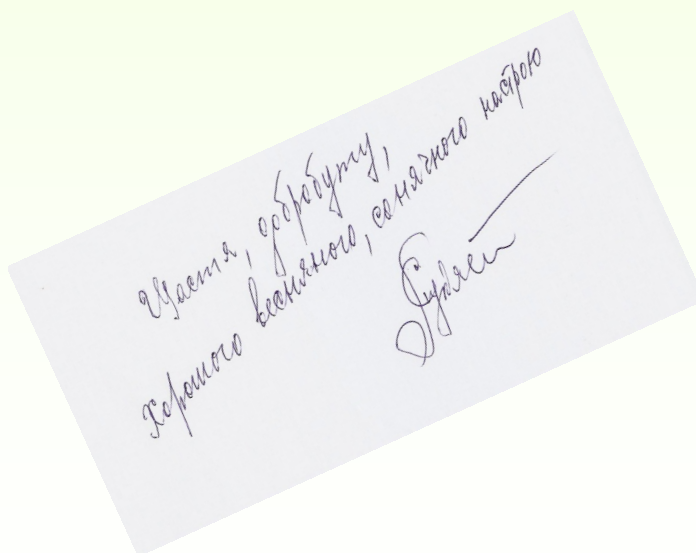 Щастя, добробуту,
хорошого весняного, сонячного настрою